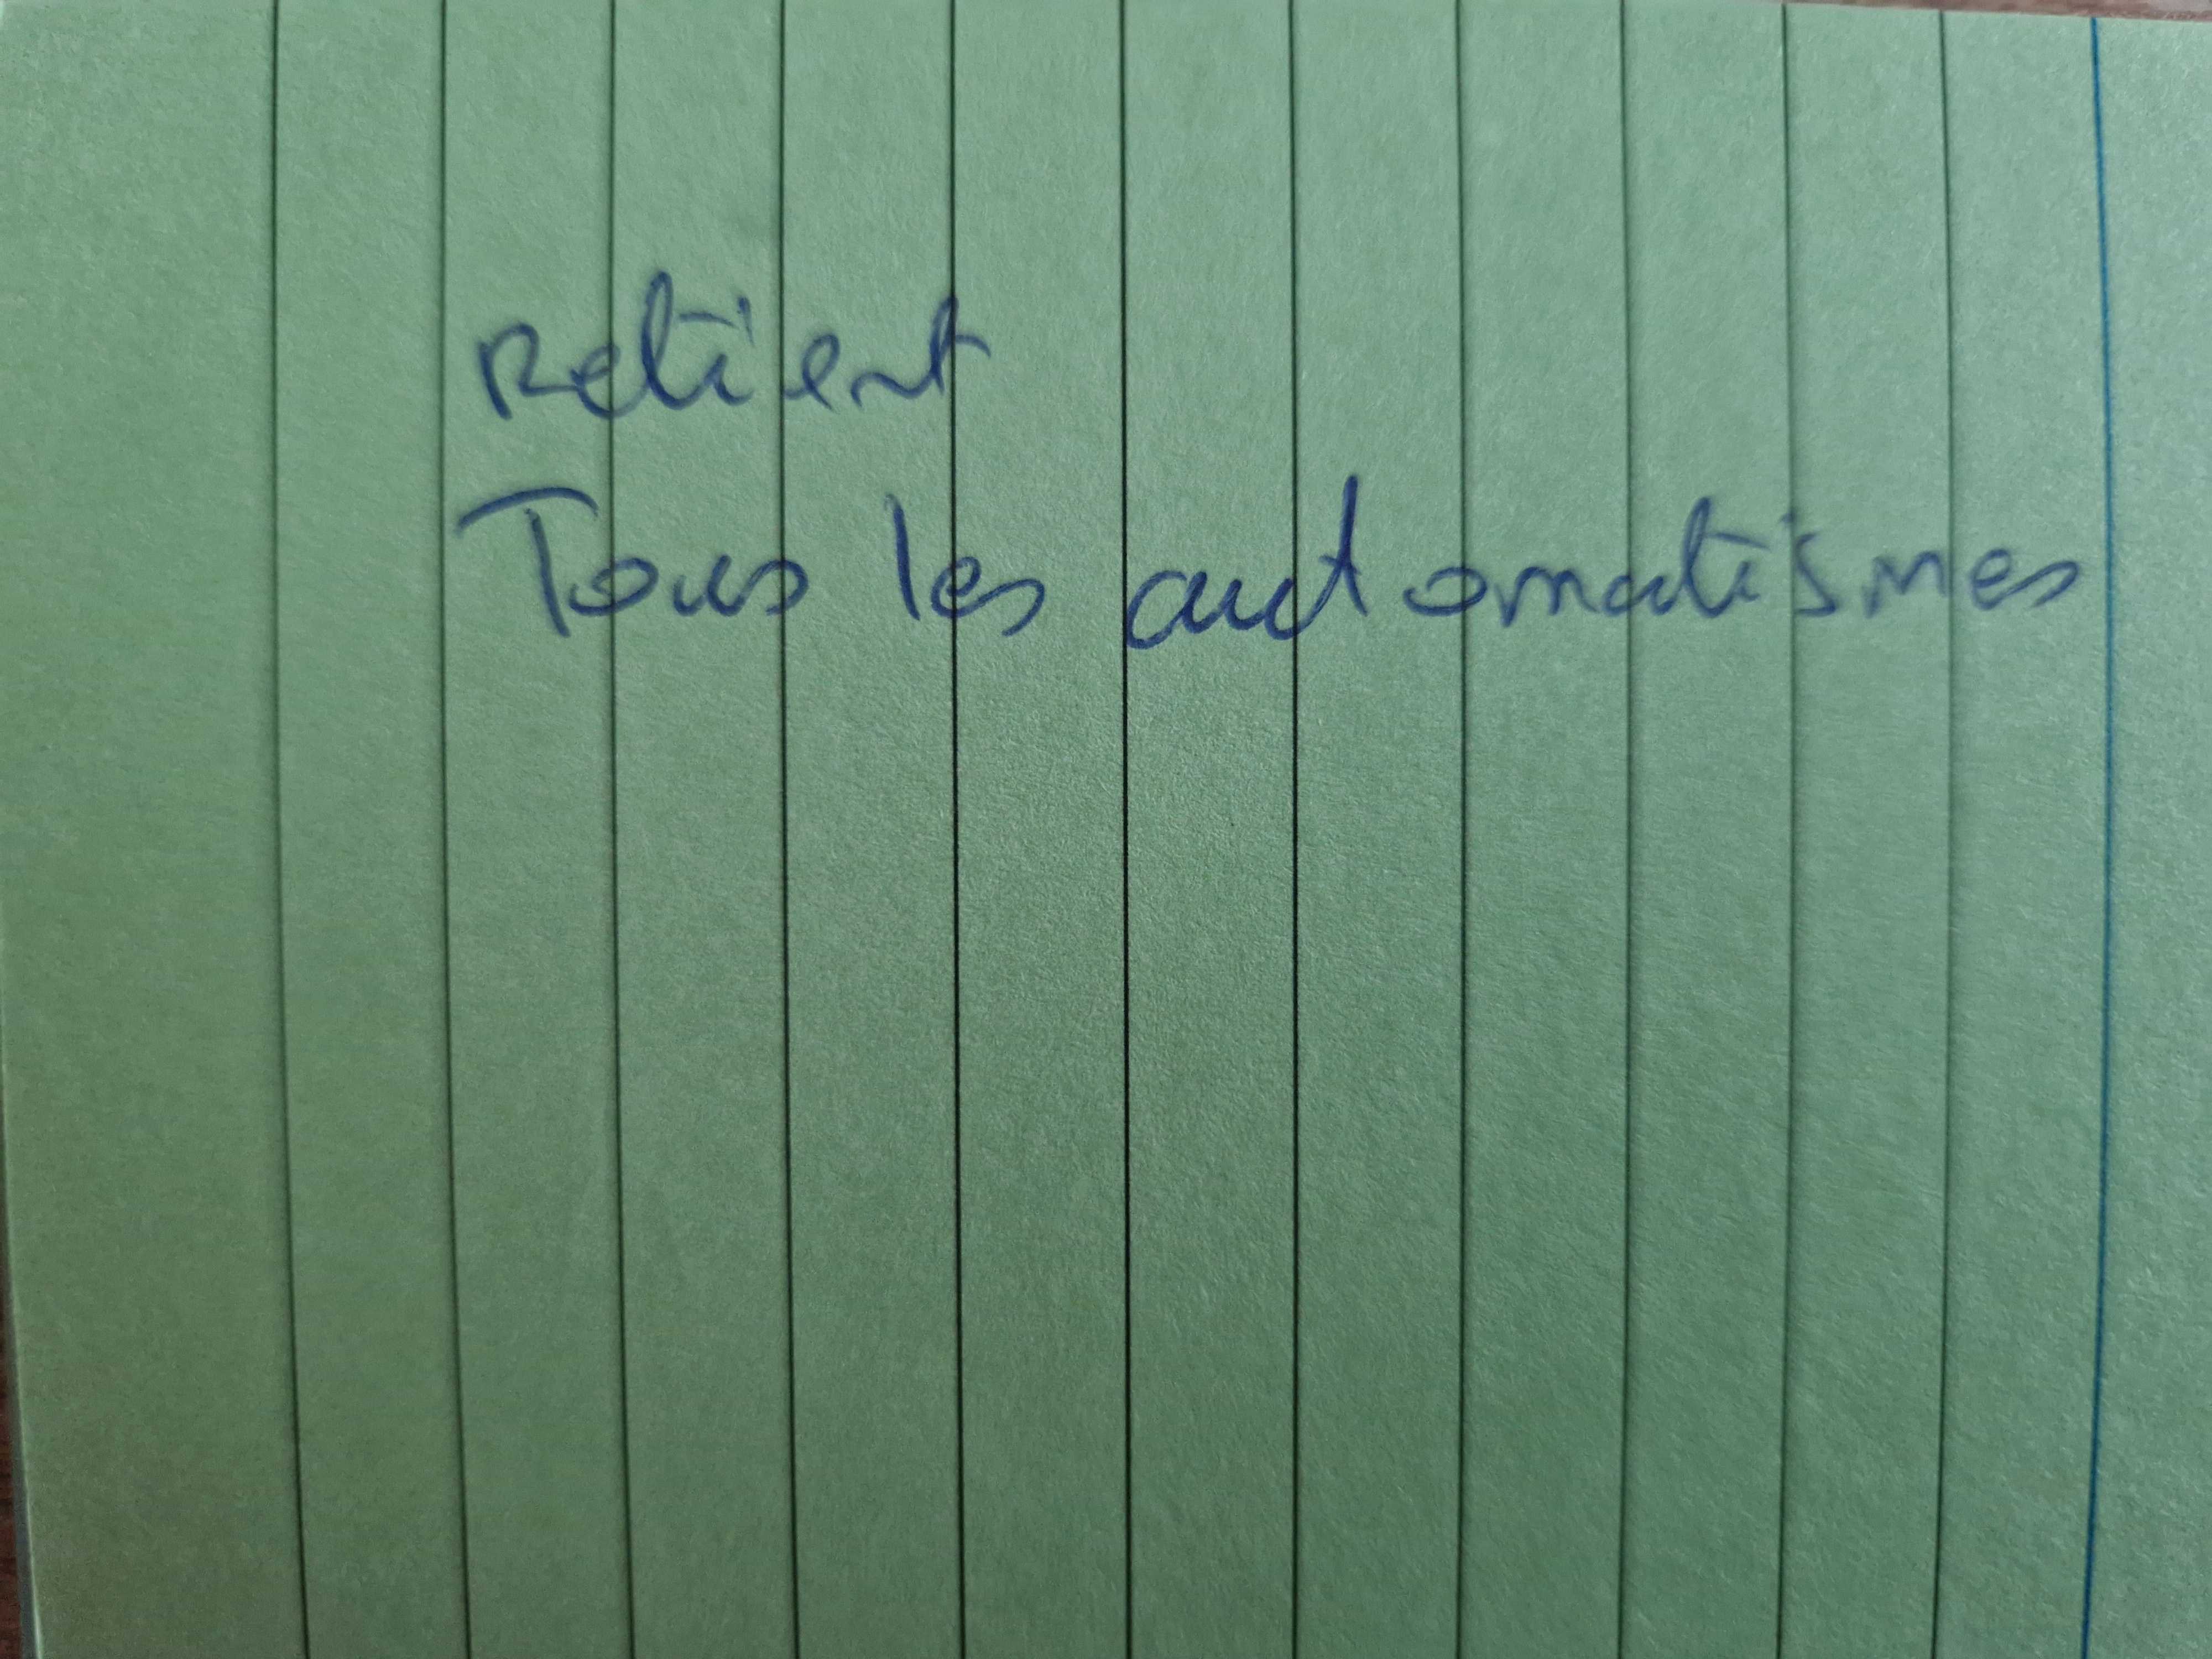 Retient
Tous les automatismes